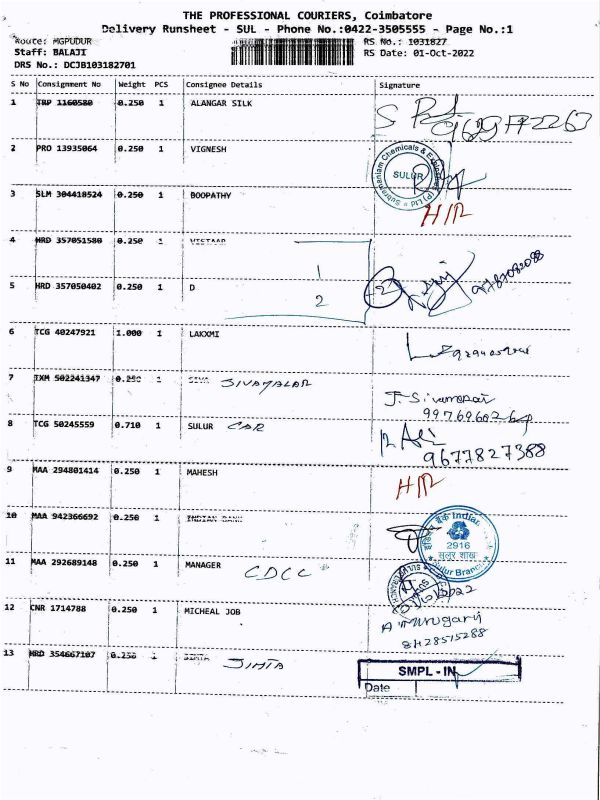 THE PROFESSIONAL COURIERS, Coimbatore
Delivery Runsheet - SUL - Phone No.:0422-3505555 - Page No.:1
Route: MGPUDUR RS No.: 1031827
Staff: BALAJI RS Date: 01-Oct-2022
DRS No.: DCJB103182701
S No Consignment No Weight PCS Consignee Details Signature
1 TRP 1160580 0.250 1 ALANGAR SILK
2 PRO 13935064 0.250 1 VIGNESH
SULUR
3 SLM 304418524 0.250 1 BOOPATHY
4 HRD 357051580 0.250 1 VISTAAR
1
5 HRD 357050402 0.250 1 D
2
6 TCG 40247921 1.000 1 LAKXMI
7 IXM 502241347 0.250 1 SIVA SIVAMALAR
8 TCG 50245559 0.710 1 SULUR CAR
9677827388
9 MAA 294801414 0.250 1 MAHESH
10 MAA 942366692 0.250 1 INDIAN BANK
Indian
2916
सुलूर शाखा
Sulur Branch
11 MAA 292689148 0.250 1 MANAGER CDCC
12 CNR 1714788 0.250 1 MICHEAL JOB
A Murugan
8428515288
13 HRD 354667107 0.250 1
SMPL - IN
Date